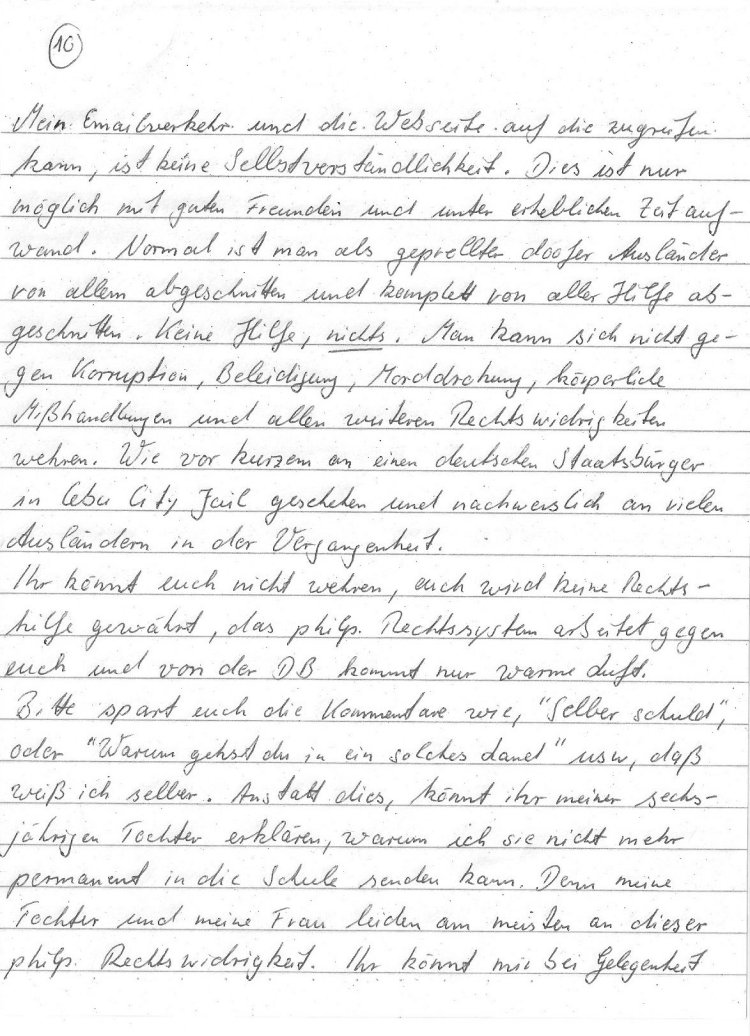 10
Mein Emailverkehr und die Webseite auf die zugreifen
kann, ist keine Selbstverständlichkeit. Dies ist nur
möglich mit guten Freunden und unter erheblichen Zeitauf-
wand. Normal ist man als geprellter doofer Ausländer
von allem abgeschnitten und komplett von aller Hilfe ab-
geschnitten. Keine Hilfe, nichts. Man kann sich nicht ge-
gen Korruption, Beleidigung, Morddrohung, körperliche
Mißhandlungen und allen weiteren Rechtswidrigkeiten
wehren. Wie vor kurzem an einen deutschen Staatsbürger
in Cebu City Jail geschehen und nachweislich an vielen
Ausländern in der Vergangenheit.
Ihr könnt euch nicht wehren, euch wird keine Rechts-
hilfe gewährt, das philp. Rechtssystem arbeitet gegen
euch und von der DB kommt nur warme Luft.
Bitte spart euch die Kommentare wie, "Selber schuld",
oder "Warum gehst du in ein solches Land" usw, daß
weiß ich selber. Anstatt dies, könnt ihr meiner sechs-
jährigen Tochter erklären, warum ich sie nicht mehr
permanent in die Schule senden kann. Denn meine
Tochter und meine Frau leiden am meisten an dieser
philp. Rechtswidrigkeit. Ihr könnt mir bei Gelegenheit